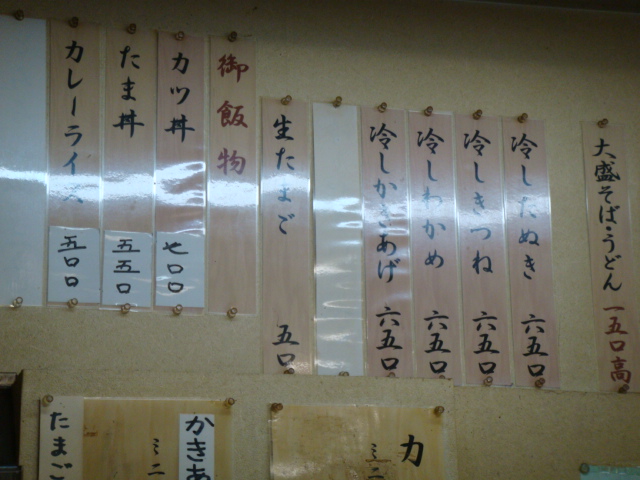 大盛そば・うどん 一五〇高
冷したぬき 六五〇
冷しきつね 六五〇
冷しわかめ 六五〇
冷しかきあげ 六五〇
生たまご 五〇
御飯物
カツ丼 七〇〇
たま丼 五五〇
カレーライス 五〇〇
カ
ミニ
かきあ
ミニ
たまご